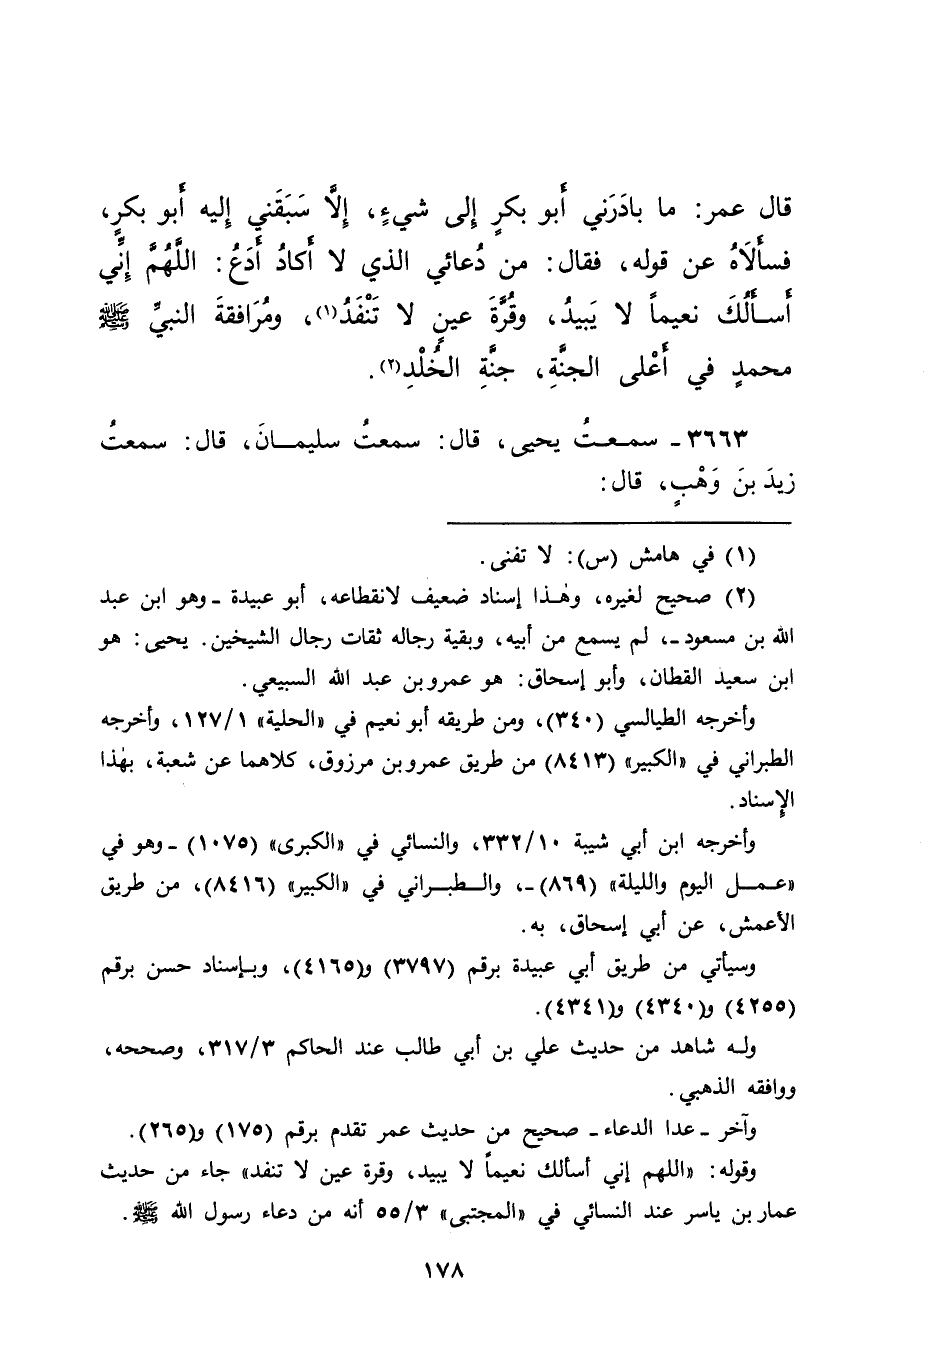 قال عمر: ما بادَرَني أَبو بكرٍ إلى شيءٍ، إِلَّا سَبَقَني إِليه أَبو بكرٍ،
فسأَلَاهُ عن قوله، فقال: من دُعائي الذي لا أَكادُ أَدَعُ: اللَّهُمَّ إِنِّي
أَسـأَلُكَ نعيماً لا يَبيدُ، وقُرَّةَ عينٍ لا تَنْفَدُ(١)، ومُرَافقةَ النبيِّ ﷺ
محمدٍ في أَعْلى الجنَّةِ، جنَّةِ الخُلْدِ(٢).
٣٦٦٣ـ سمعتُ يحيى، قال: سمعتُ سليمانَ، قال: سمعتُ
زيدَ بنَ وَهْبٍ، قال:
(١) في هامش (س): لا تفنى.
(٢) صحيح لغيره، وهٰذا إسناد ضعيف لانقطاعه، أبو عبيدة ـ وهو ابن عبد
الله بن مسعود ـ، لم يسمع من أبيه، وبقية رجاله ثقات رجال الشيخين. يحيى: هو
ابن سعيد القطان، وأبو إسحاق: هو عمرو بن عبد الله السبيعي.
وأخرجه الطيالسي (٣٤٠)، ومن طريقه أبو نعيم في «الحلية» ١٢٧/١، وأخرجه
الطبراني في «الكبير» (٨٤١٣) من طريق عمرو بن مرزوق، كلاهما عن شعبة، بهٰذا
الإسناد.
وأخرجه ابن أبي شيبة ٣٣٢/١٠، والنسائي في «الكبرى» (١٠٧٥) ـ وهو في
«عـمـل اليوم والليلة» (٨٦٩) ـ، والـطبـراني في «الكبير» (٨٤١٦)، من طريق
الأعمش، عن أبي إسحاق، به.
وسيأتي من طريق أبي عبيدة برقم (٣٧٩٧) و(٤١٦٥)، وبـإسناد حسن برقم
(٤٢٥٥) و(٤٣٤٠) و(٤٣٤١).
ولـه شاهد من حديث علي بن أبي طالب عند الحاكم ٣١٧/٣، وصححه،
ووافقه الذهبي.
وآخر ـ عدا الدعاء ـ صحيح من حديث عمر تقدم برقم (١٧٥) و(٢٦٥).
وقوله: «اللهم إني أسألك نعيماً لا يبيد، وقرة عين لا تنفد» جاء من حديث
عمار بن ياسر عند النسائي في «المجتبى» ٥٥/٣ أنه من دعاء رسول الله ﷺ.
١٧٨